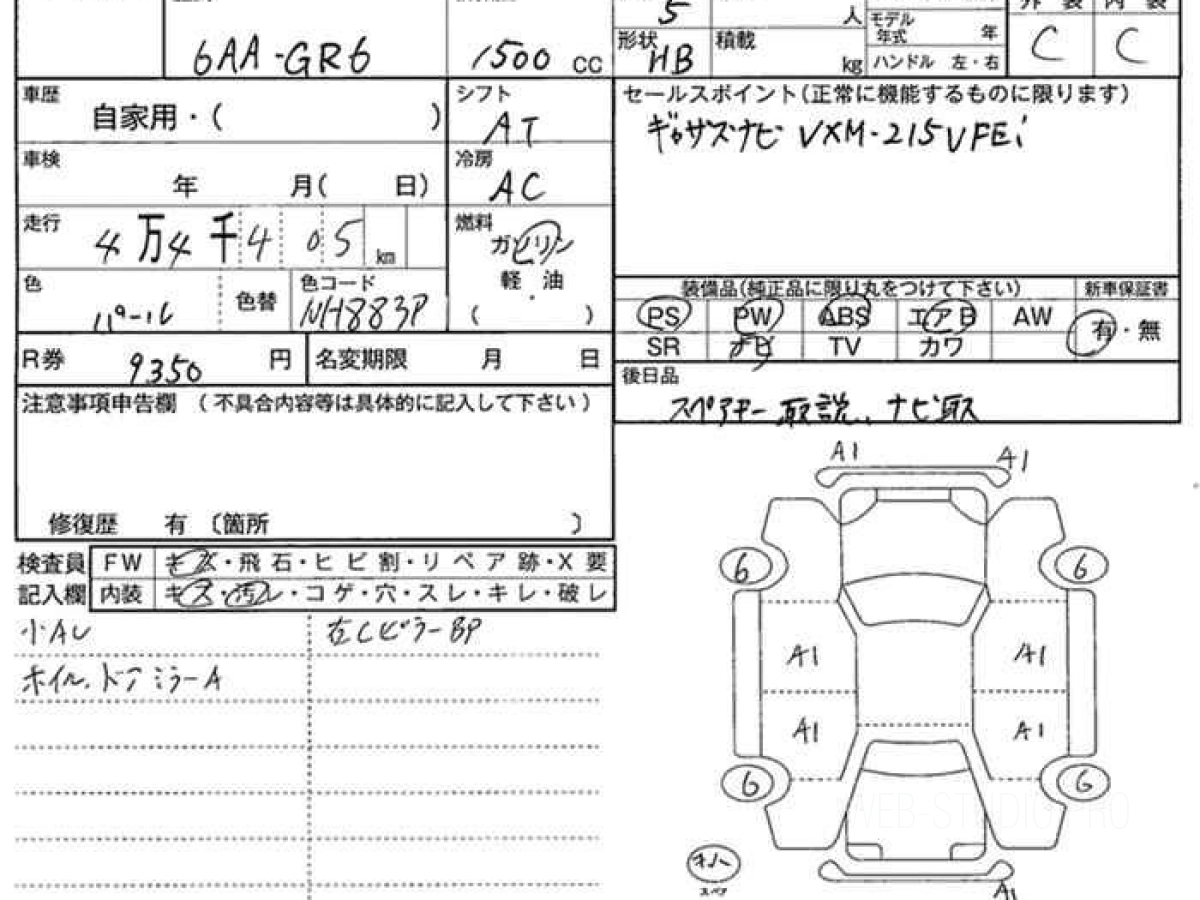 5 人
モデル年式 年
外装 内装
6AA-GR6 1500 cc
形状 HB 積載 kg
ハンドル 左・右
C C
車歴 自家用・( )
シフト AT
セールスポイント(正常に機能するものに限ります)
ギャザズナビ VXM-215VFEi
車検 年 月( 日)
冷房 AC
走行 4万4千405km
燃料 ガソリン
軽油
( )
色 パール 色替 色コード NH883P
装備品(純正品に限り丸をつけて下さい) 新車保証書
PS PW ABS エアB AW 有・無
SR ナビ TV カワ
R券 9350 円 名変期限 月 日
後日品
スペアキー 取説、ナビ取
注意事項申告欄 (不具合内容等は具体的に記入して下さい)
修復歴 有 〔箇所 〕
検査員 FW キズ・飛石・ヒビ割・リペア跡・X要
記入欄 内装 キズ・汚レ・コゲ・穴・スレ・キレ・破レ
小AU 左Cピラー BP
ホイル、ドアミラーA
A1 A1
6 6
A1 A1
A1 A1
6 6
WEB-STUDIO.PRO
キハー
スペア
A1